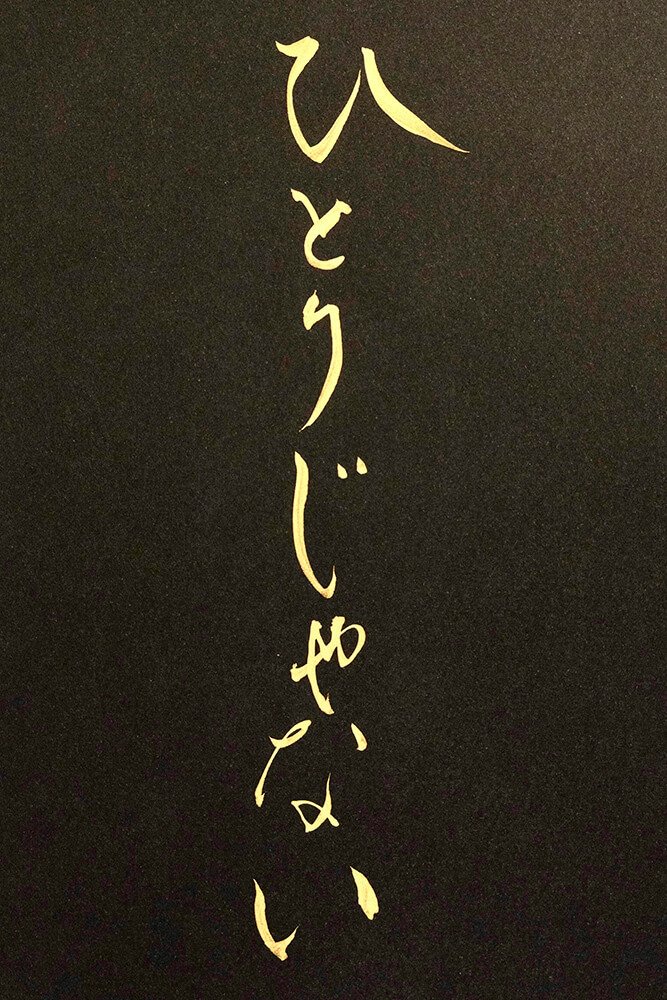 ひとりじゃない